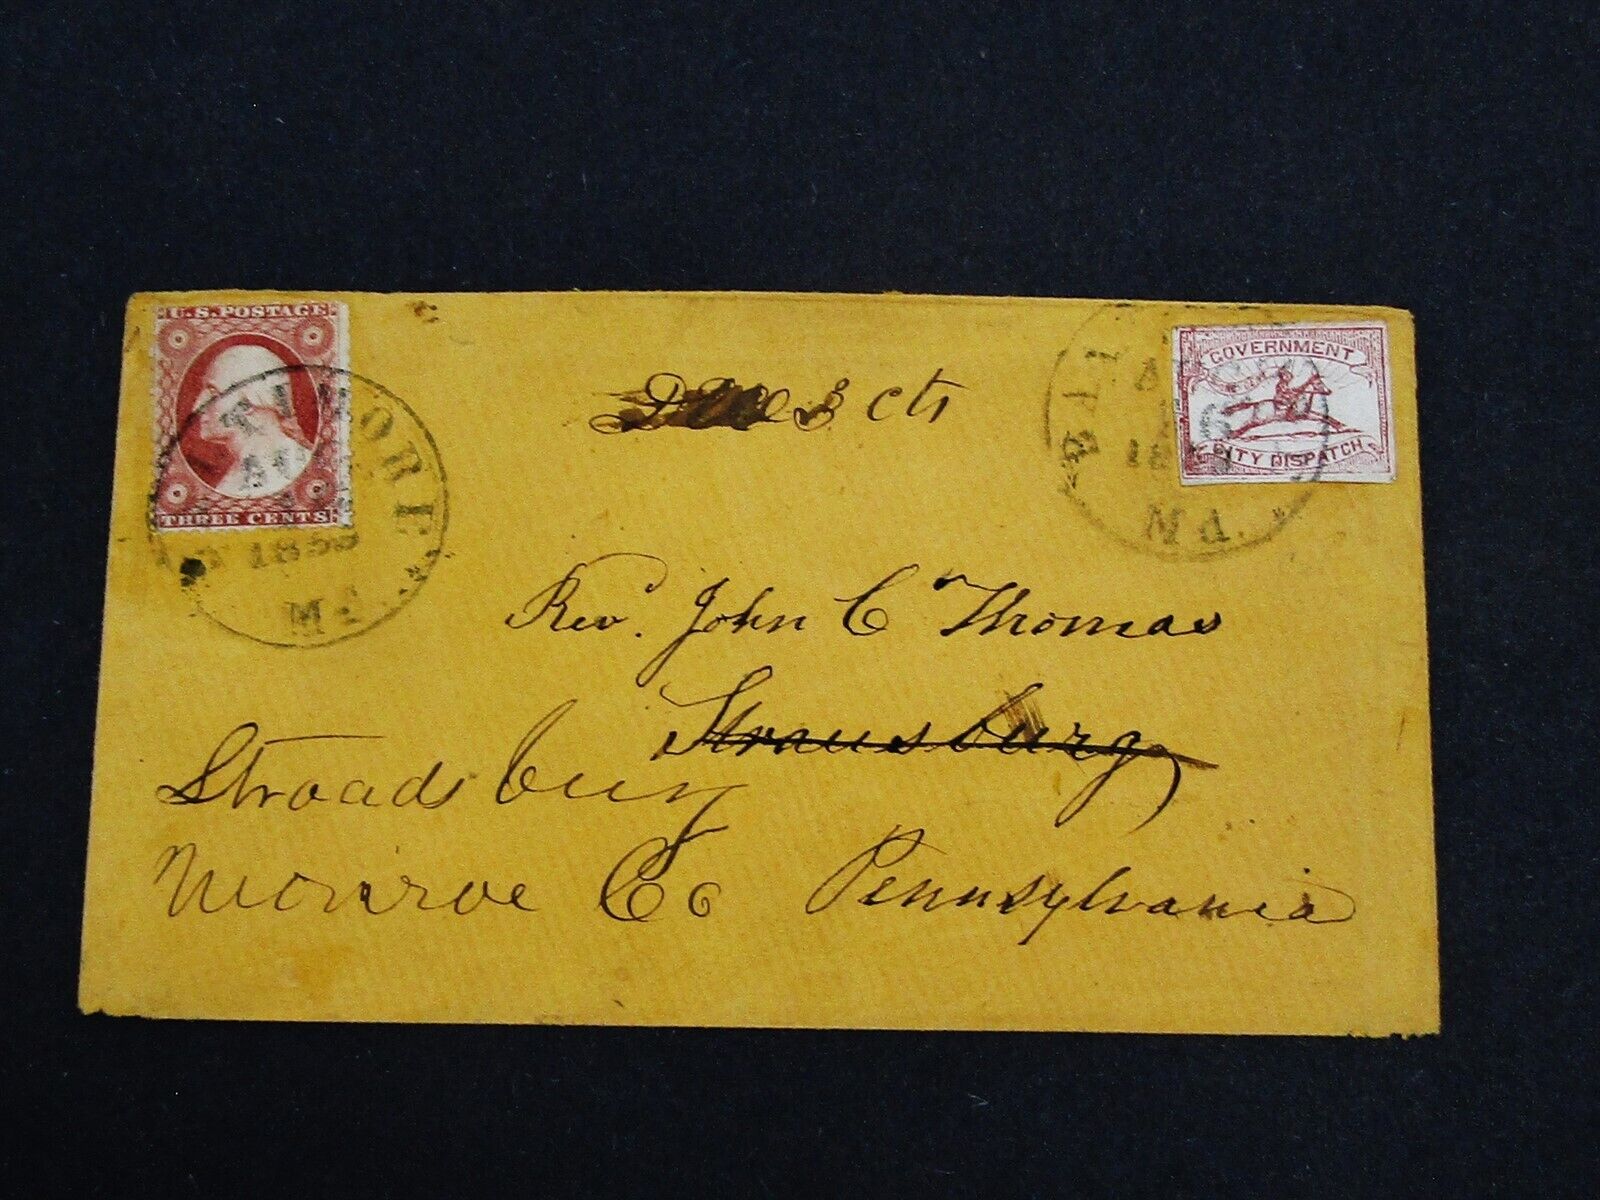 U.S. POSTAGE
THREE CENTS
BALTIMORE
1858
Md.
cts
BALT
Md.
GOVERNMENT
CITY DISPATCH
Rev. John C Thomas
Strausburg
Stroadsburg
Monroe Co Pennsylvania